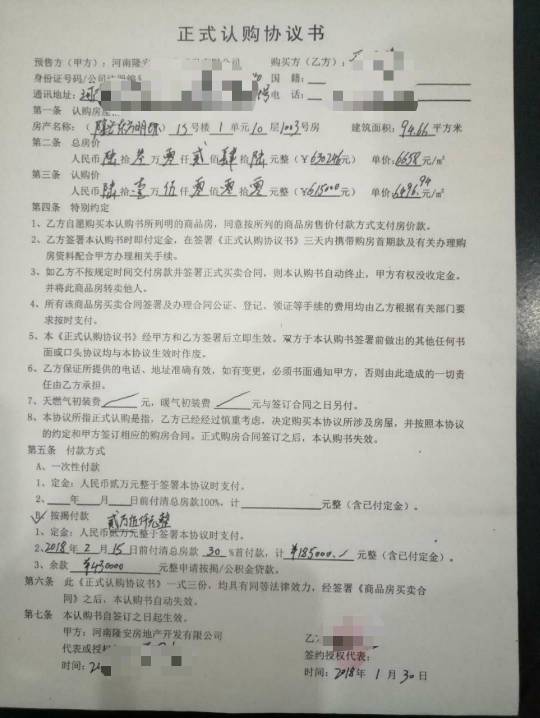 正式认购协议书
预售方（甲方）：河南隆安 购买方（乙方）：
身份证号码/公司注册编 国 籍：
通讯地址： 号 电 话：
第一条 认购房屋
房产名称：（隆安东方明珠）15号楼 1 单元 10 层 1003号房 建筑面积：94.66 平方米
第二条 总房价
人民币 陆 拾 叁 万 零 仟 贰 佰 肆 拾 陆 元整（￥630246元） 单价：6658 元/㎡
第三条 认购价
人民币 陆 拾 壹 万 伍 仟 零 佰 零 拾 零 元整（￥615000元） 单价：6496.94元/㎡
第四条 特别约定
1、乙方自愿购买本认购书所列明的商品房，同意按所列的商品房售价付款方式支付房价款。
2、乙方签署本认购书时即付定金，在签署《正式认购协议书》三天内携带购房首期款及有关办理购
房资料配合甲方办理相关手续。
3、如乙方不按规定时间交付房款并签署正式买卖合同，则本认购书自动终止，甲方有权没收定金。
并将此商品房转卖他人。
4、所有该商品房买卖合同签署及办理合同公证、登记、领证等手续的费用均由乙方根据有关部门要
求按时支付。
5、本《正式认购协议书》经甲方和乙方签署后立即生效。双方于本认购书签署前做出的其他任何书
面或口头协议均与本协议生效时作废。
6、乙方保证所提供的电话、地址准确有效，如有变更，必须书面通知甲方，否则由此造成的一切责
任由乙方承担。
7、天燃气初装费 元，暖气初装费 元与签订合同之日另付。
8、本协议所指正式认购是指，乙方已经经过慎重考虑，决定购买本协议所涉及房屋，并按照本协议
的约定和甲方签订相应的购房合同。正式购房合同签订之后，本认购书失效。
第五条 付款方式
A、一次性付款
1、定金：人民币贰万元整于签署本协议时支付。
2、 年 月 日前付清总房款100%、计 元整（含已付定金）。
B、按揭付款 贰万伍仟元整
1、定金：人民币贰万元整于签署本协议时支付。
2、2018 年 2 月 15 日前付清总房款 30 %首付款，计 ￥185000. 元整（含已付定金）。
3、余款 ￥430000 元整申请按揭/公积金贷款。
第六条 此《正式认购协议书》一式三份，均具有同等法律效力，经签署《商品房买卖合
同》之后，本认购书自动失效。
第七条 本认购书自签订之日起生效。
甲方：河南隆安房地产开发有限公司 乙
代表或授 签约授权代表：
时间：20 时间：2018年 1 月 30 日